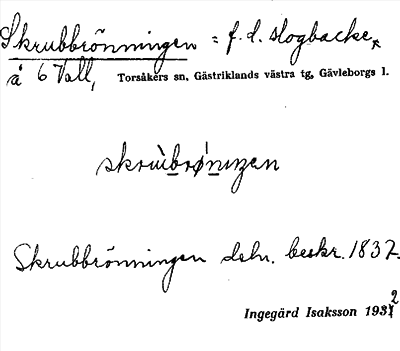 Skrubbrönningen = f.d. slogbacke,
å 6 Vall, Torsåkers sn, Gästriklands västra tg, Gävleborgs l.
skrùbrø̀nıŋen
Skrubbrönningen dehr. beskr. 1837.
Ingegärd Isaksson 1932